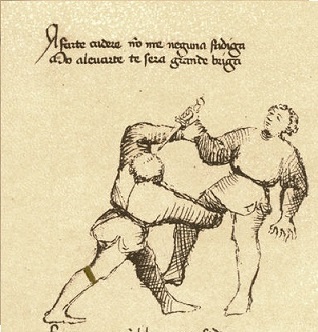 A farte cadere nō me neguna fadiga
Mo aleuarte te sera grande briga